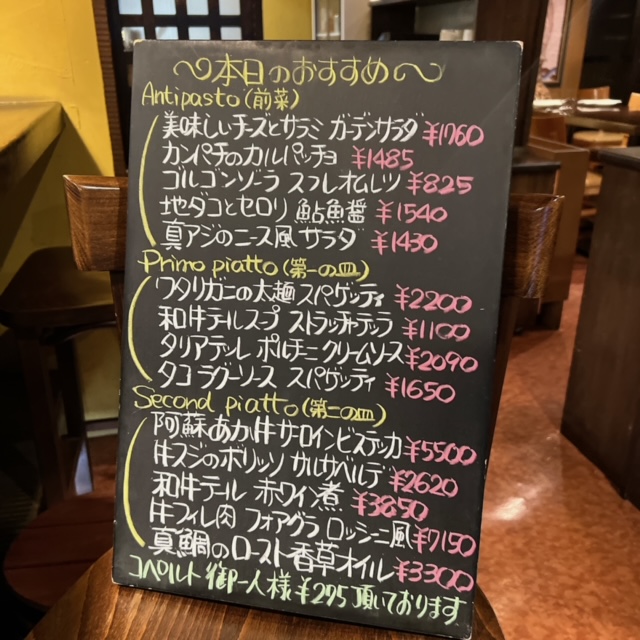 〜本日のおすすめ〜
Antipasto (前菜)
美味しいチーズとサラミ ガーデンサラダ ¥1760
カンパチのカルパッチョ ¥1485
ゴルゴンゾーラ スフレオムレツ ¥825
地ダコとセロリ 鮎魚醤 ¥1540
真アジのニース風 サラダ ¥1430
Primo piatto (第一の皿)
ワタリガニの太麺 スパゲッティ ¥2200
和牛テールスープ ストラッチャテッラ ¥1100
タリアテッレ ポルチーニ クリームソース ¥2090
タコ ラグーソース スパゲッティ ¥1650
Second piatto (第二の皿)
阿蘇あか牛サーロインビステッカ ¥5500
牛スジのボリッソ サルサベルデ ¥2620
和牛テール 赤ワイン煮 ¥3850
牛フィレ肉 フォアグラ ロッシーニ風 ¥7150
真鯛のロースト香草オイル ¥3300
コペルト 御一人様 ¥295 頂いております